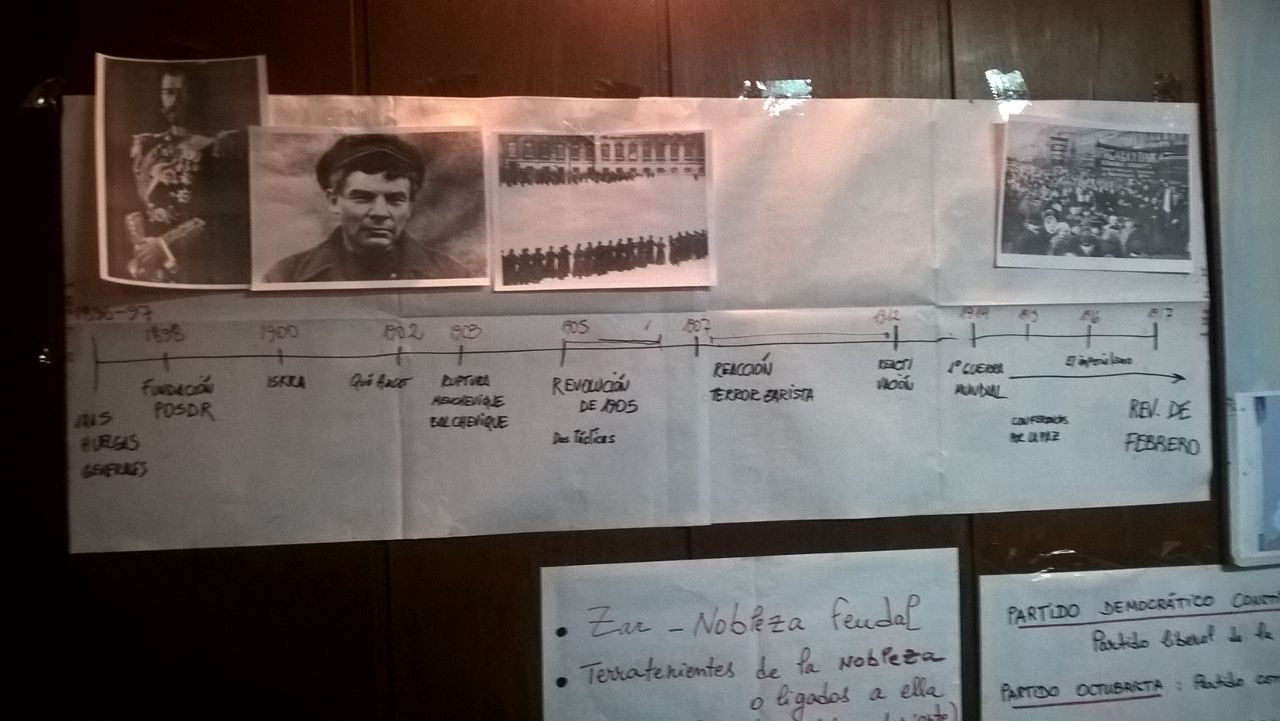 1896-97
1898
1900
1902
1903
1905
1907
1912
1914
1915
1916
1917
HUELGAS
GENERALES
FUNDACIÓN
POSDR
ISKRA
Qué hacer
RUPTURA
MENCHEVIQUE
BOLCHEVIQUE
REVOLUCIÓN
DE 1905
Dos Tácticas
REACCIÓN
TERROR ZARISTA
REACTI
VACIÓN
1º GUERRA
MUNDIAL
El imperialismo
CONFERENCIAS
POR LA PAZ
REV. DE
FEBRERO
• Zar - Nobleza feudal
• Terratenientes de la Nobleza
o ligados a ella
PARTIDO DEMOCRÁTICO CONST
Partido liberal de la
PARTIDO OCTUBRISTA : Partido con